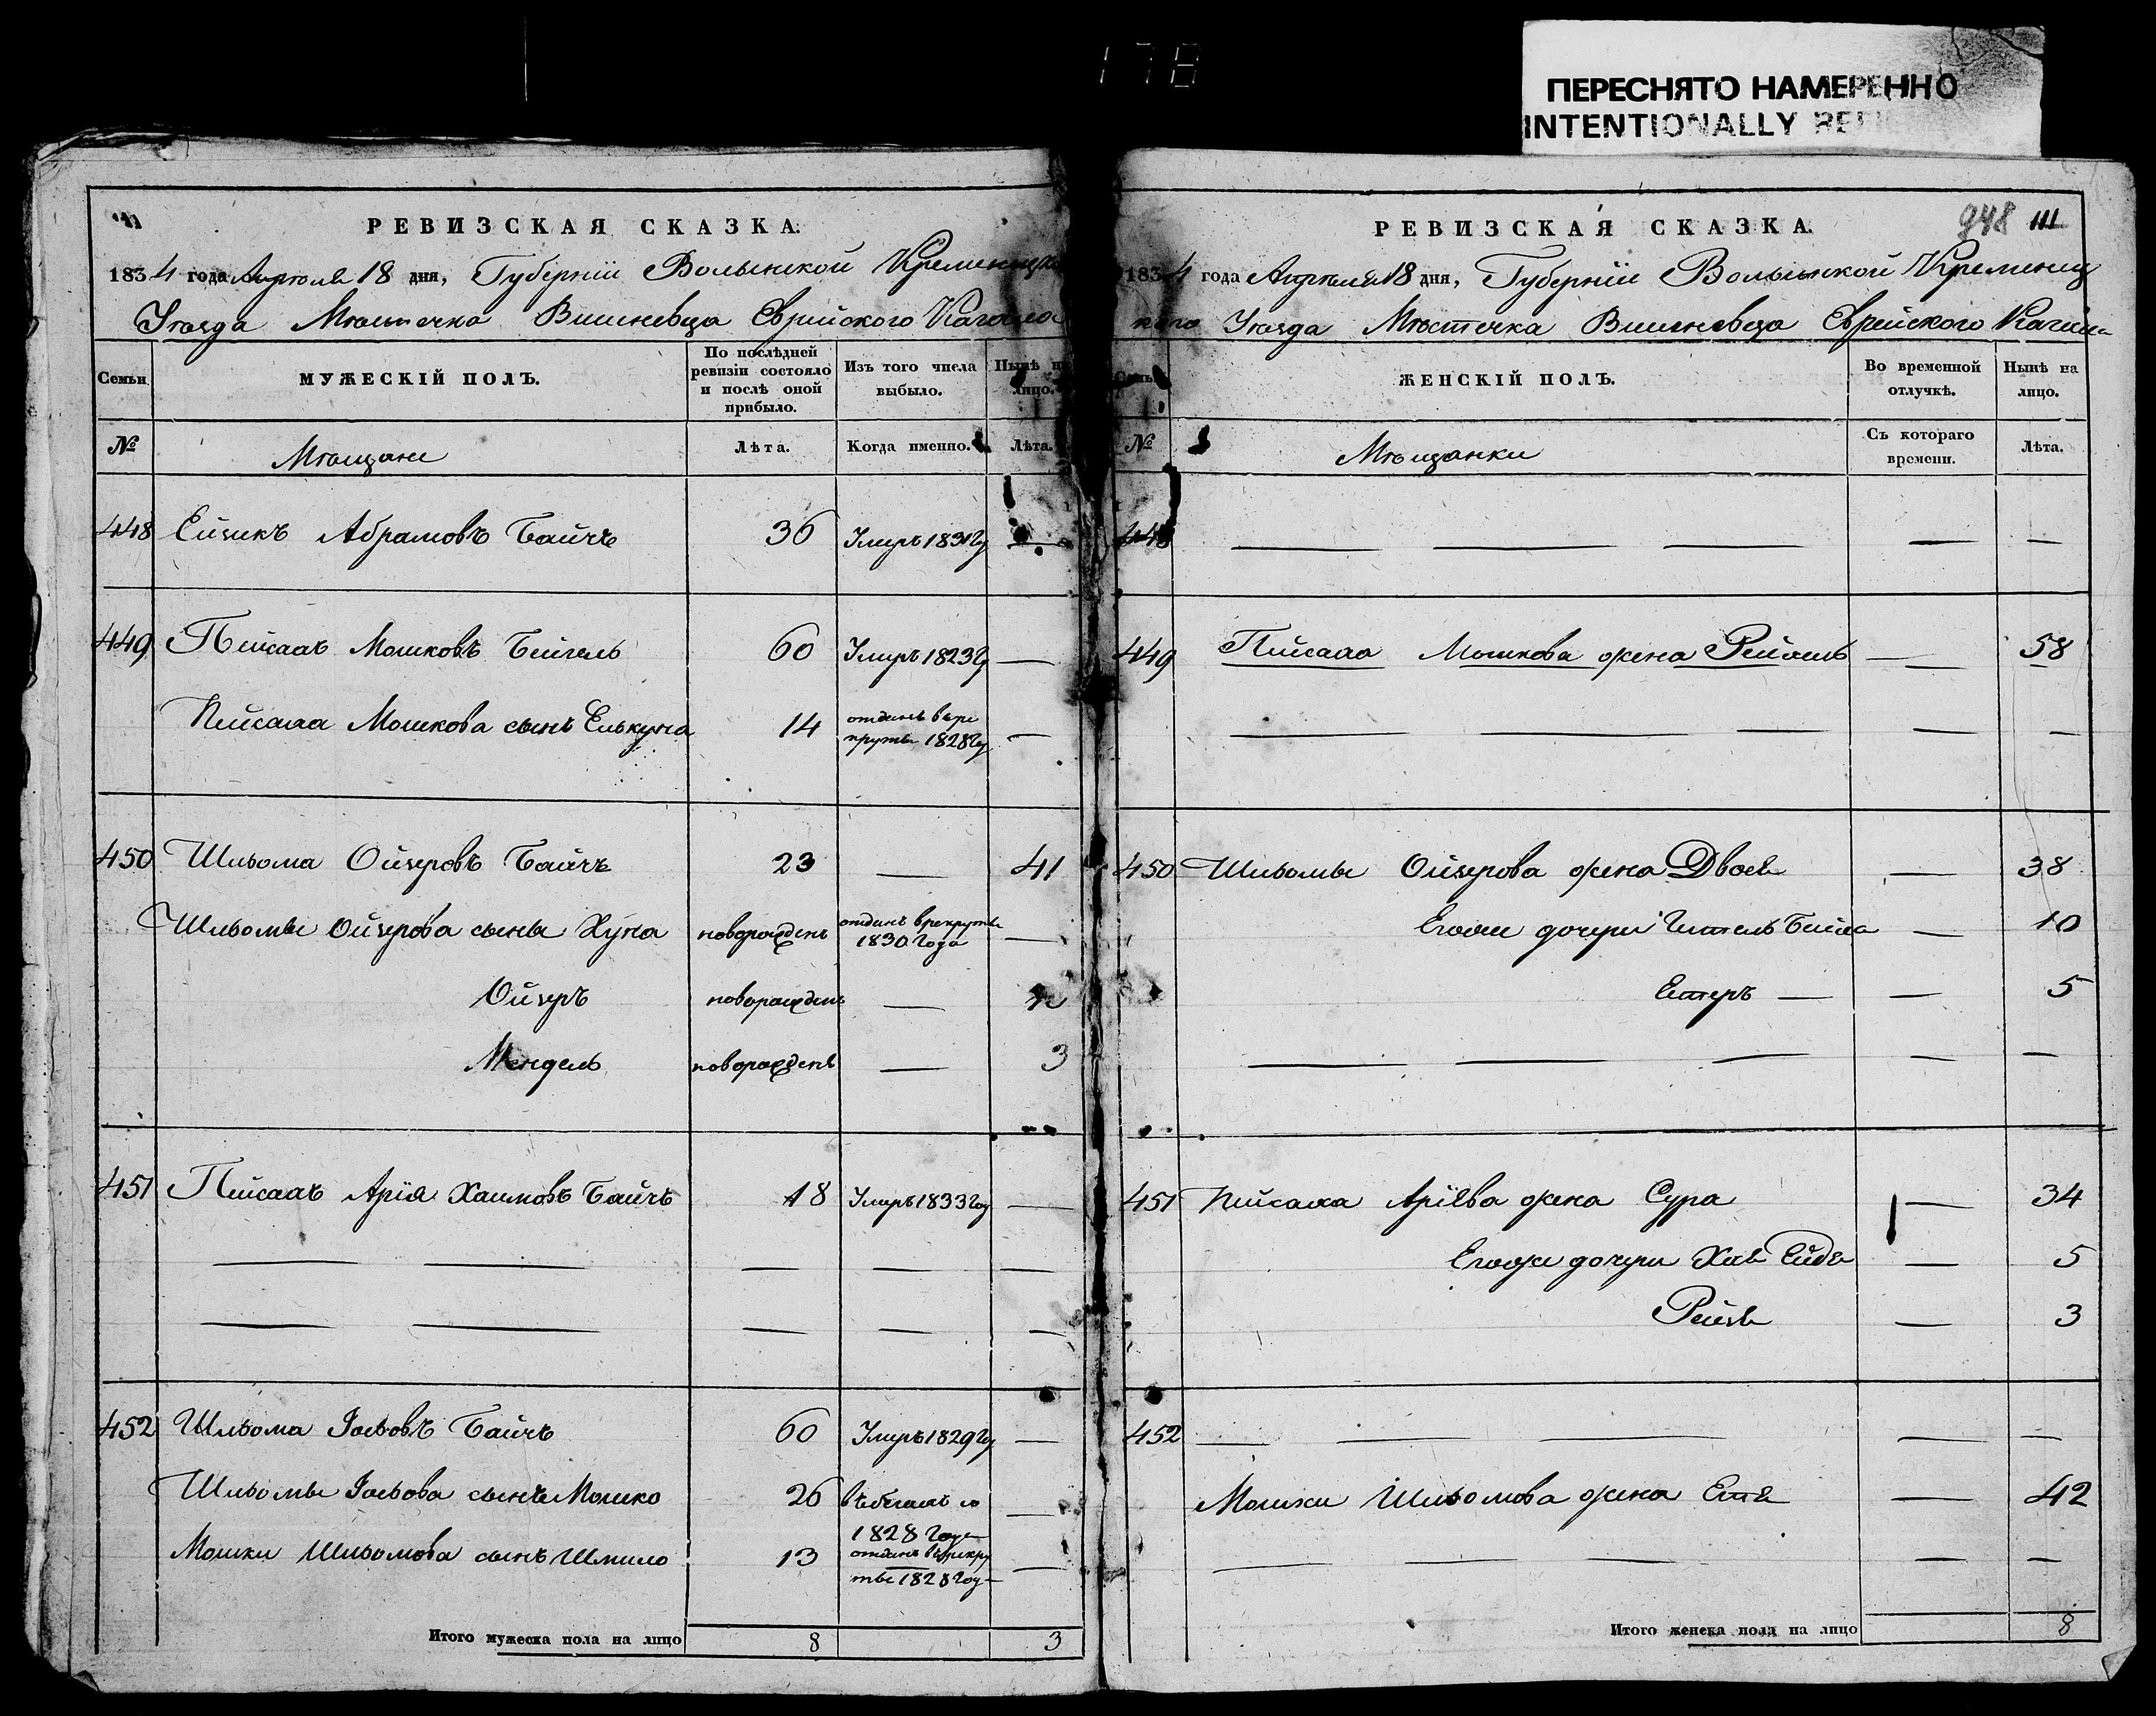 178
ПЕРЕСНЯТО НАМЕРЕННО
INTENTIONALLY
РЕВИЗСКАЯ СКАЗКА.
1834 года Апреля 18 дня, Губернїи Волынской Кременецко
Уѣзда Мѣстечка Вишневца Еврейского Кагала
Семьи
МУЖЕСКІЙ ПОЛЪ.
По послѣдней ревизіи состояло и послѣ оной прибыло.
Изъ того числа выбыло.
Нынѣ на лицо.
№
Мѣщане
Лѣта.
Когда именно.
Лѣта.
448 Ейзикъ Абрамовъ Байчъ 36 Умеръ 1831 го —
449 Пейсахъ Мошковъ Бейгель 60 Умеръ 1823 го —
Пейсаха Мошкова сынъ Елькуна 14 отданъ врекруты 1828 го —
450 Шльома Ойзеровъ Байчъ 23 — 41
Шльомы Ойзерова сыны Хуна новорожденъ отданъ врекруты 1830 года —
Ойзеръ новорожденъ —
Мендель новорожденъ — 3
451 Пейсахъ Арїя Хаимовъ Байчъ 18 Умеръ 1833 году —
— — — — —
— — — — —
452 Шльома Іосьовъ Байчъ 60 Умеръ 1829 го —
Шльомы Іосьова сынъ Мошко 26 вбегахъ со 1828 года —
Мошки Шльомова сынъ Шмило 13 отданъ врекруты 1828 году —
Итого мужеска пола на лицо 8 3
РЕВИЗСКАЯ СКАЗКА.
948 111
1834 года Апреля 18 дня, Губернїи Волынской Кременец
кого Уѣзда Мѣстечка Вишневца Еврейского Кагала
Семьи
ЖЕНСКІЙ ПОЛЪ.
Во временной отлучкѣ.
Нынѣ на лицо.
№
Мѣщанки
Съ котораго времени.
Лѣта.
448 — — — — —
449 Пейсаха Мошкова жена Рейзель — 58
— — — — —
450 Шльомы Ойзерова жена Двося — 38
Егоже дочери Бейла — 10
Естеръ — — 5
— — — — —
451 Пейсаха Арїева жена Сура — 34
Егоже дочери Хая Ейдя — 5
Рейзя — 3
452 — — — — —
Мошки Шльомова жена Етя — 42
— — — — —
Итого женска пола на лицо 8